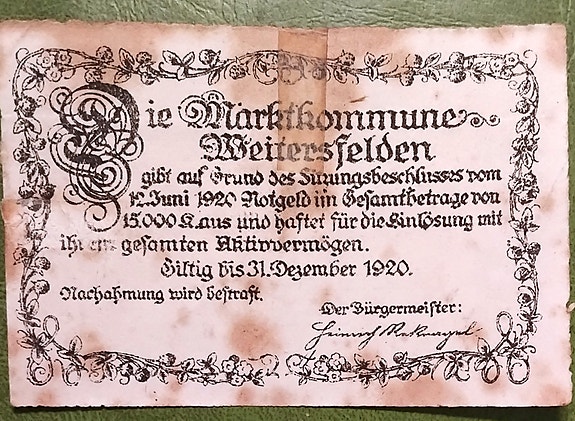 Die Marktkommune
Weitersfelden
gibt auf Grund des Sitzungsbeschlusses vom
12. Juni 1920 Notgeld im Gesamtbetrage von
15.000 K aus und haftet für die Einlösung mit
ihrem gesamten Aktivvermögen.
Giltig bis 31. Dezember 1920.
Nachahmung wird bestraft.
Der Bürgermeister:
Heinrich